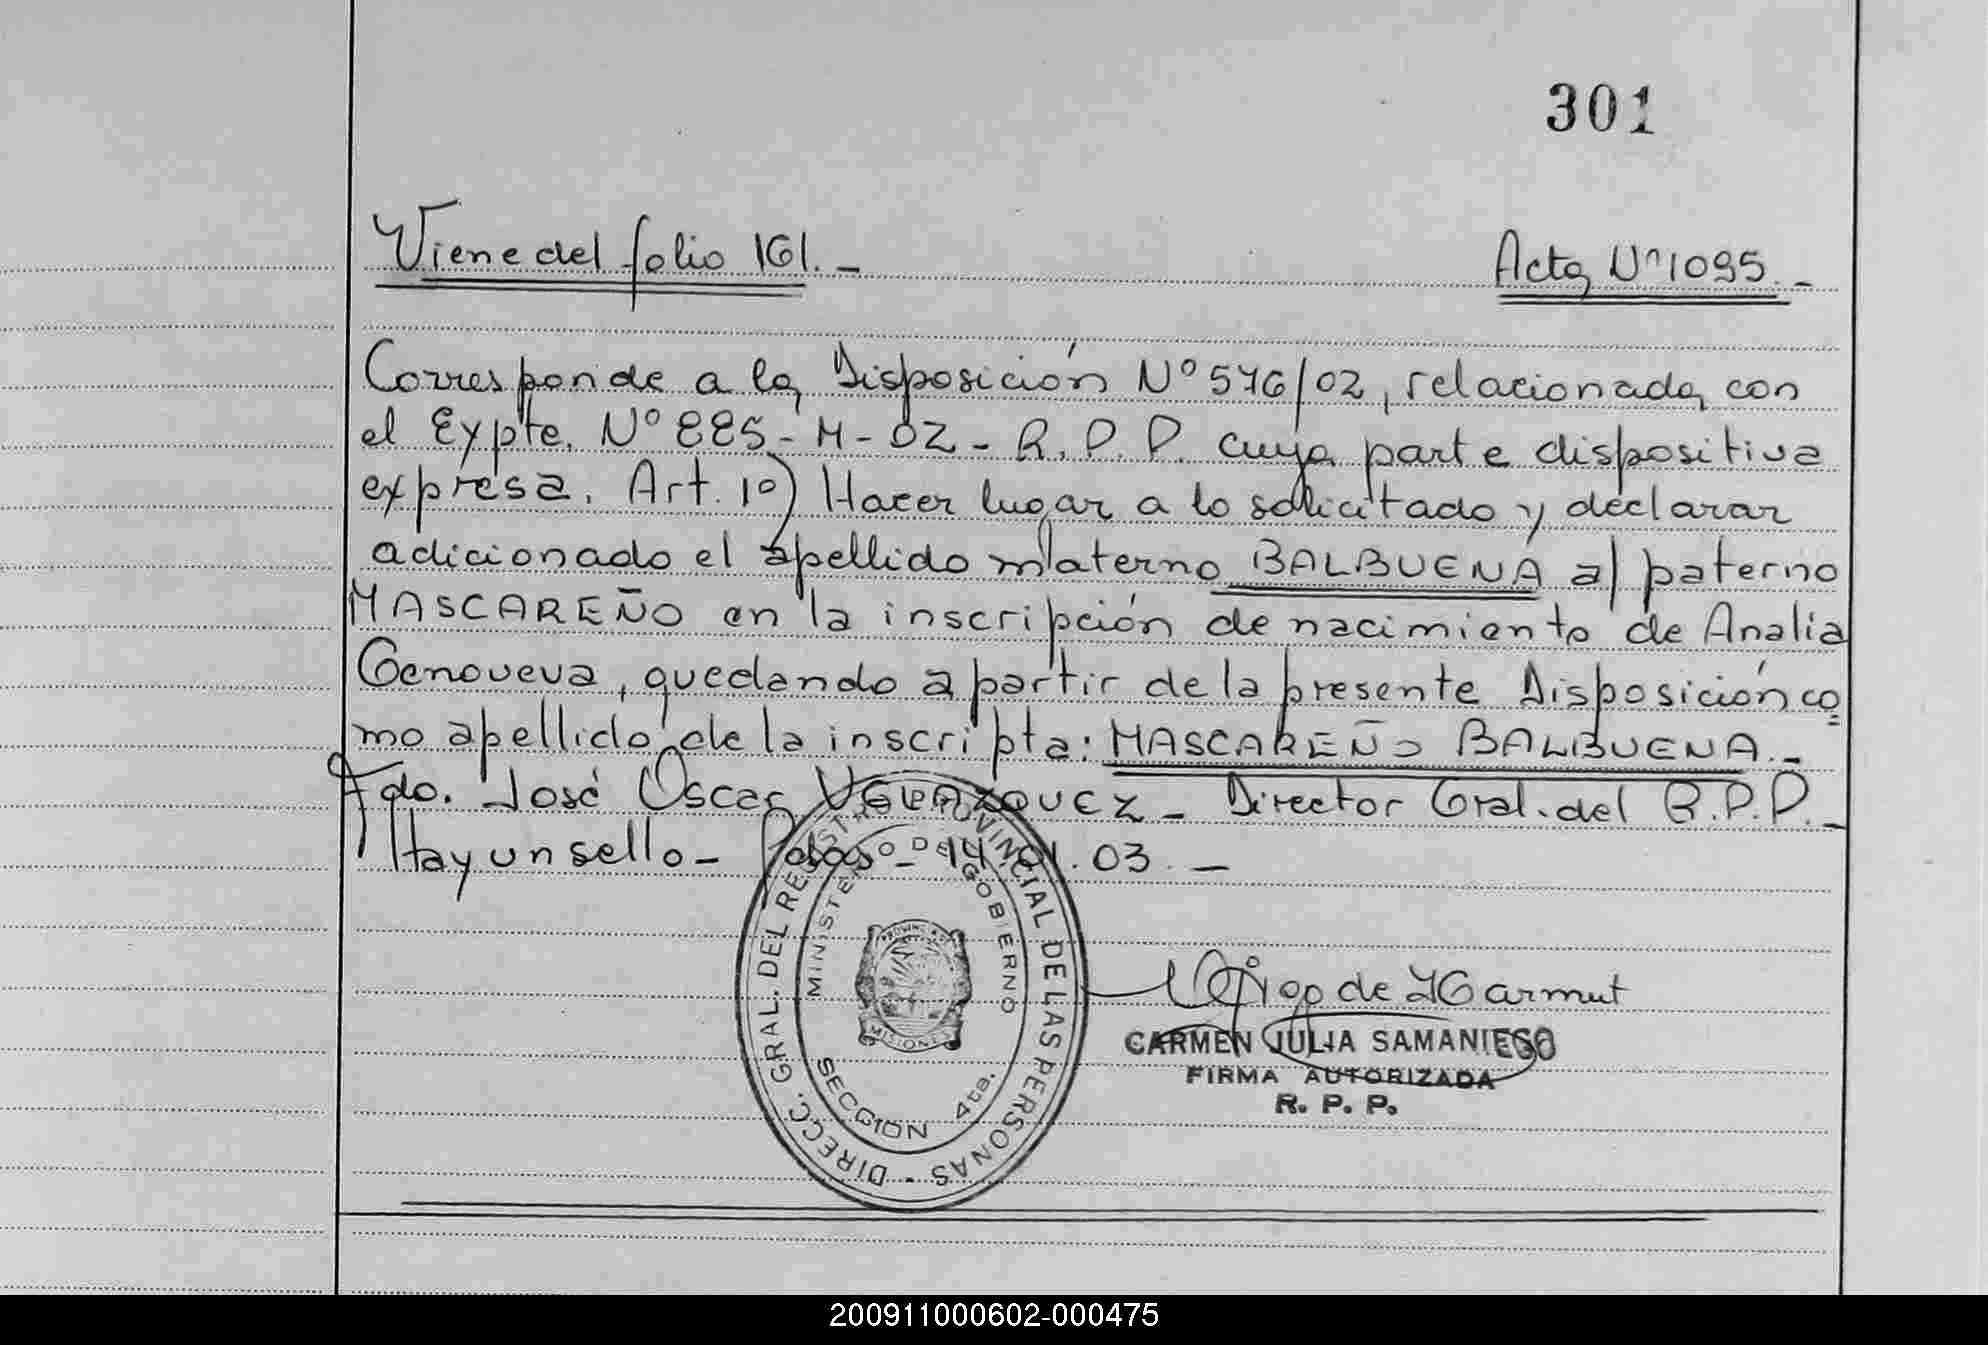 301
Viene del folio 161.-
Acta Nº 1095.-
Corresponde a la Disposición Nº 576/02, relacionada con
el Expte. Nº 885-M-02-R.P.P. cuya parte dispositiva
expresa. Art. 1º) Hacer lugar a lo solicitado y declarar
adicionado el apellido materno BALBUENA al paterno
MASCAREÑO en la inscripción de nacimiento de Analia
Genoveva, quedando a partir de la presente Disposición co
mo apellido de la inscripta: MASCAREÑO BALBUENA.-
Fdo. José Oscar VELAZQUEZ- Director Gral. del R.P.P.-
Hay un sello- Posadas- 14.01.03.-
DIRECC. GRAL. DEL REGISTRO PROVINCIAL DE LAS PERSONAS -
MINISTERIO DE GOBIERNO
MISIONES
SECCION 4ta.
de Harmut
CARMEN JULIA SAMANIEGO
FIRMA AUTORIZADA
R. P. P.
200911000602-000475